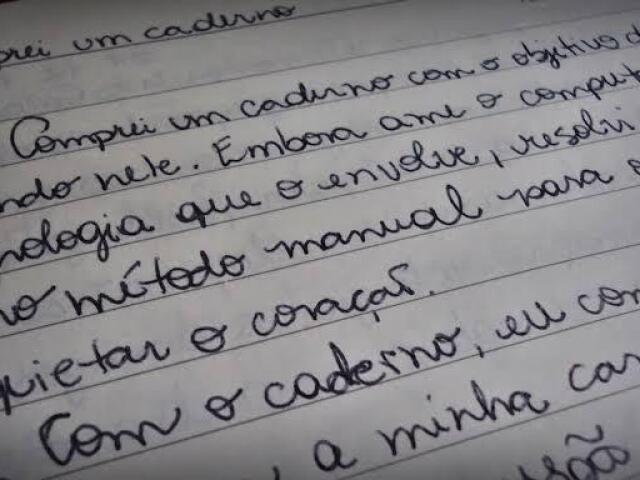 rei um caderno
Comprei um caderno com o objetivo d
ndo nele. Embora ame o computa
nologia que o envolve, resolvi
o método manual para
quietar o coração.
Com o caderno, eu con
, a minha car
são